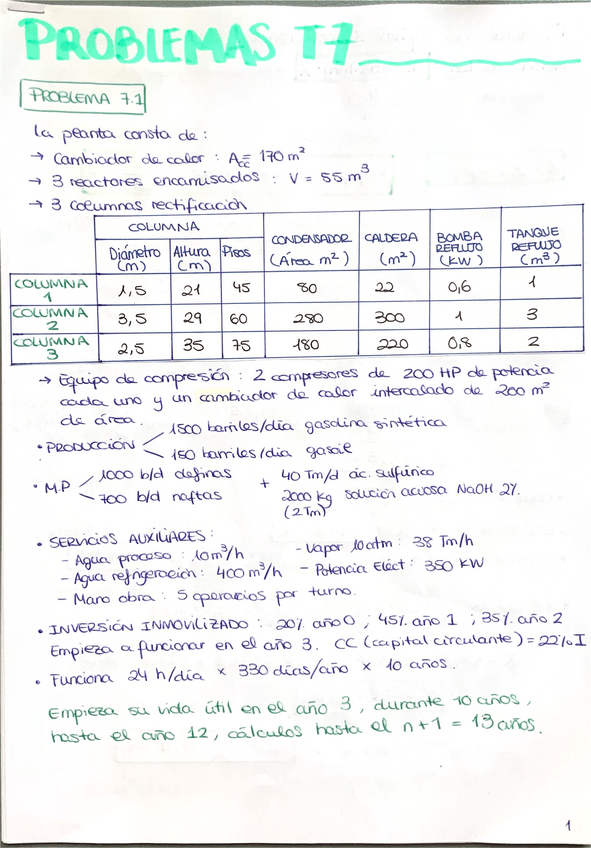 PROBLEMAS T7
PROBLEMA 7.1
La planta consta de :
→ Cambiador de calor : Acc = 170 m²
→ 3 reactores encamisados : V = 55 m³
→ 3 columnas rectificación
COLUMNA CONDENSADOR (Área m²) CALDERA (m²) BOMBA REFLUJO (KW) TANQUE REFLUJO (m³)
Diámetro (m) Altura (m) Pisos
COLUMNA 1 1,5 21 45 80 22 0,6 1
COLUMNA 2 3,5 29 60 280 300 1 3
COLUMNA 3 2,5 35 75 180 220 0,8 2
→ Equipo de compresión : 2 compresores de 200 HP de potencia
cada uno y un cambiador de calor intercalado de 200 m²
de área.
• PRODUCCIÓN 1500 barriles/día gasolina sintética
150 barriles/día gasoil
• M.P 1000 b/d olefinas + 40 Tm/d ác. sulfúrico
700 b/d naftas 2000 Kg solución acuosa NaOH 2%.
(2Tm)
• SERVICIOS AUXILIARES :
- Agua proceso : 10 m³/h - Vapor 10 atm : 38 Tm/h
- Agua refrigeración : 400 m³/h - Potencia Eléct : 350 KW
- Mano obra : 5 operarios por turno.
• INVERSIÓN INMOVILIZADO : 20% año 0 ; 45% año 1 ; 35% año 2
Empieza a funcionar en el año 3. CC (capital circulante) = 22% I
• Funciona 24 h/día × 330 días/año × 10 años.
Empieza su vida útil en el año 3, durante 10 años,
hasta el año 12, cálculos hasta el n+1 = 13 años.
1